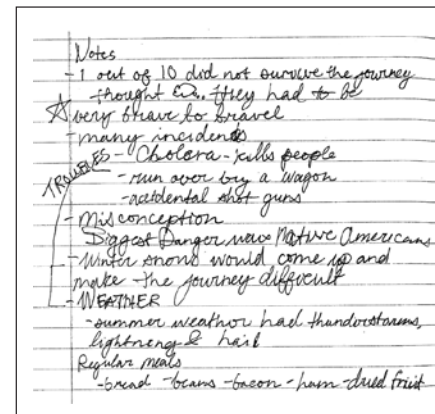 Notes
- 1 out of 10 did not survive the journey
- thought they had to be
☆ very brave to travel
- many incidents
TROUBLES - Cholora - kills people
- run over by a wagon
- accidental shot guns
- Misconception
Biggest Danger were Native Americans
- Winter snows would come up and
make the journey difficult
- WEATHER
- summer weather had thunderstorms,
lightning & hail
Regular meals
- bread - beans - bacon - ham - dried fruit